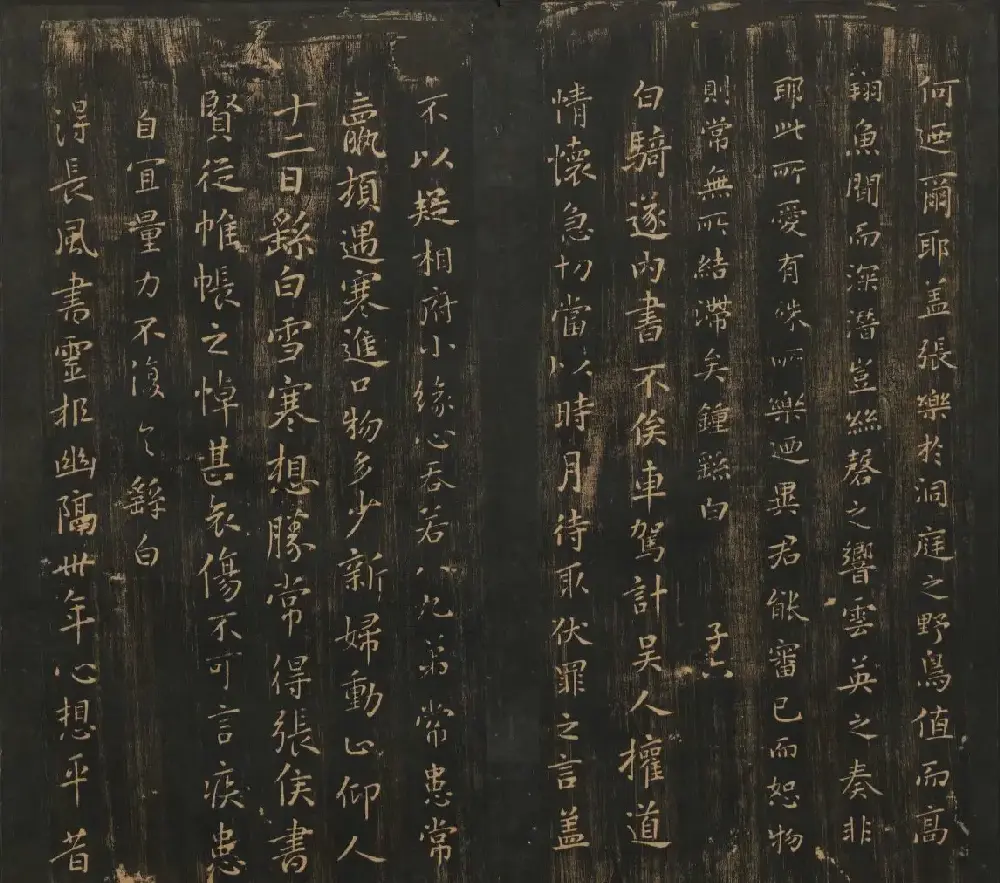 何迺爾耶盖張樂於洞庭之野鳥值而高
翔魚聞而深潛豈絲磬之響雲英之奏非
耶此所愛有殊所樂迺異君能審已而恕物
則常無所結滯矣鍾繇白
子六
白騎遂內書不俟車駕計吳人權道
情懷急切當以時月待取伏罪之言盖
不以疑相府小緣心吞若八九弟常患常
羸頓遇寒進口物多少新婦動止仰人
十二日繇白雪寒想勝常得張侯書
賢從帷帳之悼甚哀傷不可言疾患
自宜量力不復々繇白
得長風書靈柩幽隔卅年心想平昔